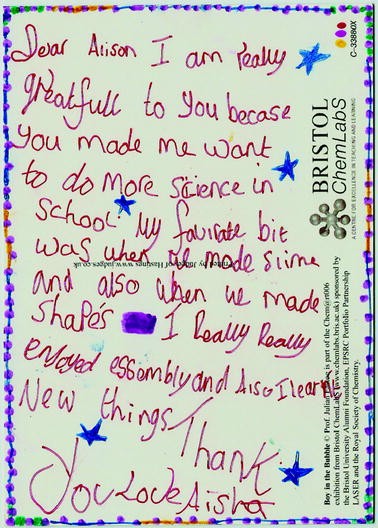 Dear Alison I am Really
greatfull to you becase
you made me want
to do more science in
school. My favirate bit
was when we made slime
and also when we made
shapes I Really Really
enjoyed essembly and Also I learnt
New things Thank
You Love Aisha
C-33880X
BRISTOL
ChemLabS
A CENTRE FOR EXCELLENCE IN TEACHING AND LEARNING
Printed by Judges of Hastings www.judges.co.uk
Boy in the Bubble © Prof. Julian is part of the Chem@rt006
exhibition from Bristol ChemLabS (www.chemlabs.bris.ac.uk) sponsored by
the Bristol University Alumni Foundation, EPSRC Portfolio Partnership
LASER and the Royal Society of Chemistry.